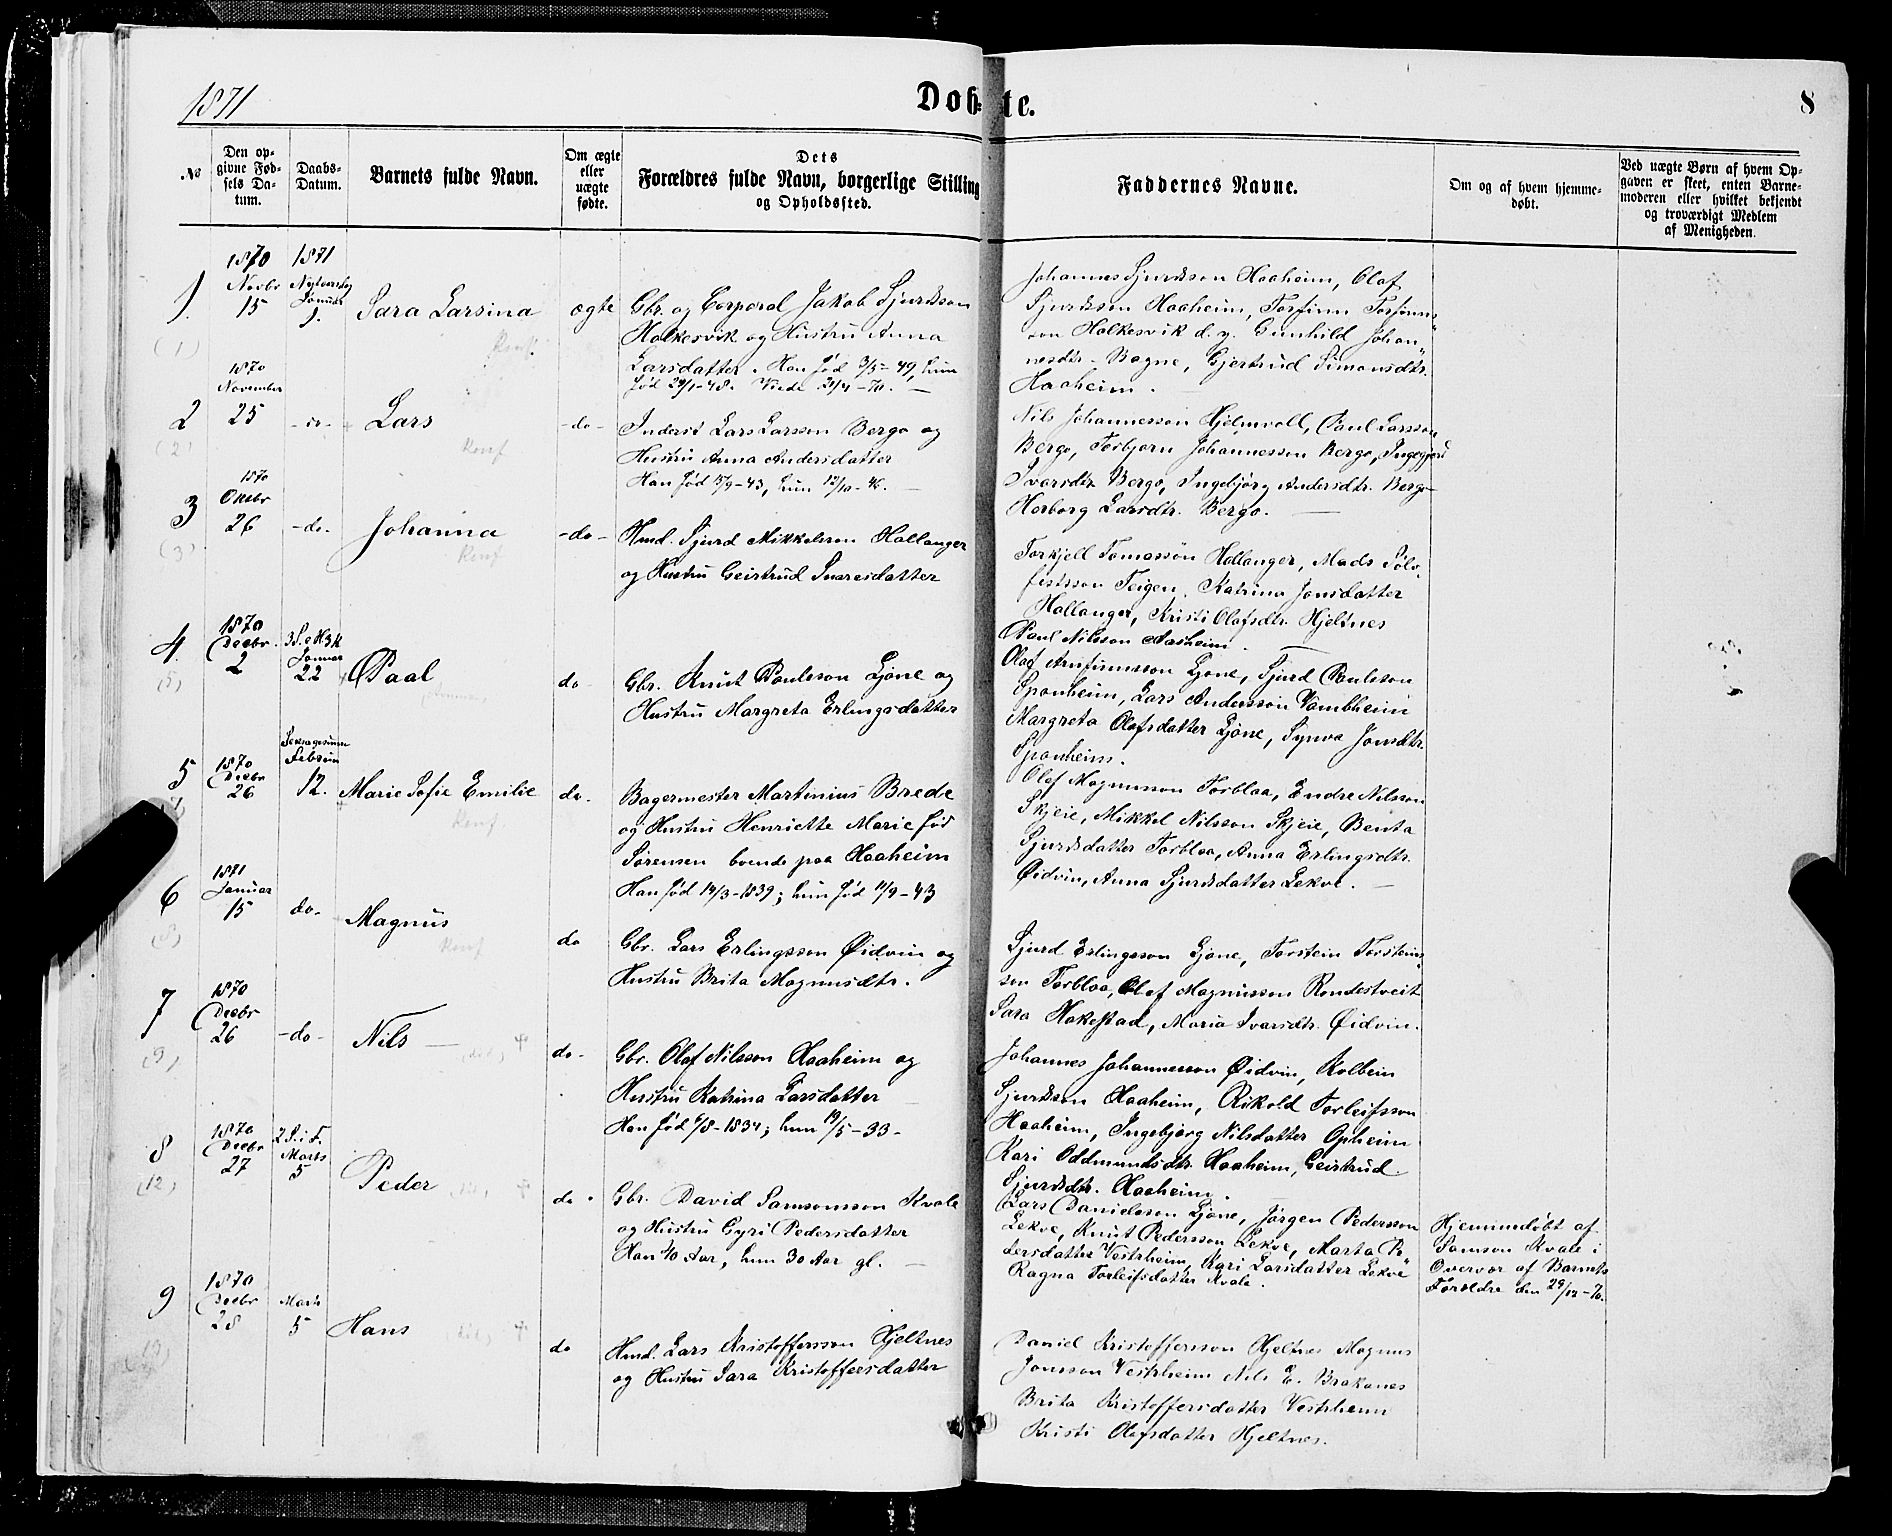 1871
Døb-te.
8
No
Den op-
givne Fød-
sels Da-
tum.
Daabs-
Datum.
Barnets fulde Navn.
Om ægte
eller
uægte
fødte.
Dets
Forældres fulde Navn, borgerlige Stilling
og Opholdssted.
Faddernes Navne.
Om og af hvem hjemme-
døbt.
Ved uægte Børn af hvem Op-
gaven er skeet, enten Barne-
moderen eller hvilket bekjendt
og troværdigt Medlem
af Menigheden.
1.
(1)
1870
Novbr
15
1871
Nytaarsdag
Januar
1.
Sara Larsina
Konf.
ægte
Gbr. og Corporal Jakob Sjurdsson
Halkesvik og Hustru Anna
Larsdatter. Han fød 3/5-49, hun
fød 29/1-48. Viede 21/4-70.
Johannes Sjurdsson Haaheim, Olaf
Sjurdsson Haaheim, Torfinn Torfinns-
son Halkesvik d.y. Gunhild Johan-
nesdtr. Bagne, Gjertrud Simonsdtr.
Haaheim.
2
(2)
1870
November
25
Lars
Konf
-do-
Inderst Lars Larsson Bergo og
Hustru Anna Andersdatter
Han fød 15/9-43, hun 12/10-46.
Nils Johannesson Hjelmvoll, Paul Larsson
Bergo, Torbjørn Johannesson Bergo, Ingegjerd
Ivarsdtr Bergo, Ingebjørg Andersdtr. Bergo
Herborg Larsdtr. Bergo.
3
(3)
1870
Oktbr
26
-do-
Johanna
Konf
-do-
Hmd. Sjurd Mikkelsson Hallanger
og Hustru Geirtrud Snaresdatter
Torkjell Tomasson Hallanger, Mads Sølv-
festsson Teigen, Katrina Jonsdatter
Hallanger, Kristi Olafsdtr. Hjeltnes
Paul Nilsson Aasheim.
4.
(5)
1870
Decbr.
2
3 S. e H3K
Januar
22
Paal
do-
Gbr. Knut Paulsson Ljone og
Hustru Margreta Erlingsdatter
Olaf Arnfinnsson Ljone, Sjurd Paulsson
Sponheim, Lars Andersson Vambheim
Margreta Olafsdatter Ljone, Synva Jonsdtr.
Sponheim.
5
1870
Decbr
26
Sexagesima
Februar
12.
Marie Sofie Emilie
Konf.
do-
Bagermester Martinius Brede
og Hustru Henriette Marie fød
Sørensen boende paa Haaheim
Han fød 14/3-1839; hun fød 11/9-43
Olaf Magnusson Torblaa, Endre Nilsson
Skjeie, Mikkel Nilsson Skjeie, Benta
Sjurdsdatter Torblaa, Anna Erlingsdtr.
Øidvin, Anna Sjurdsdatter Lekve.
6
(8)
1871
Januar
15
do-
Magnus
Konf
do
Gbr. Lars Erlingsson Øidvin og
Hustru Brita Magnusdtr.
Sjurd Erlingsson Ljone, Torstein Torsteins-
son Torblaa, Olaf Magnusson Rondestveit
Sara Hakestad, Maria Ivarsdtr. Øidvin.
7
(9)
1870
Decbr
26
-do-
Nils
(død)
do-
Gbr. Olaf Nilsson Haaheim og
Hustru Katrina Larsdatter
Han fød 6/8-1834; hun 19/5-33-
Johannes Johannesson Øidvin, Kolbein
Sjurdsson Haaheim, Rikold Torleifsson
Haaheim, Ingebjørg Nilsdatter Opheim
Kari Oddmundsdtr. Haaheim, Geirtrud
Sjurdsdtr. Haaheim.
8
(12)
1870
Decbr
27
2 S. i F.
Marts
5
Peder
do.
Gbr. David Samsonsson Kvale
og Hustru Gyri Pedersdatter
Han 40 Aar, hun 30 Aar gl.
Lars Danielsson Ljone, Jørgen Pedersson
Lekve, Knut Pedersson Lekve, Marta Pe-
dersdatter Vestrheim, Kari Larsdatter Lekve
Ragna Torleifsdatter Kvale.
Hjemmedøbt af
Samson Kvale i
Overvær af Barnets
Forældre den 29/12-70.
9
(13)
1870
Decbr
28
Marts
5
Hans
(død)
do
Hmd. Lars Kristoffersson Hjeltnes
og Hustru Sara Kristoffersdatter
Daniel Kristoffersson Hjeltnes Magnus
Jonsson Vestrheim Nils E. Brakanes
Brita Kristoffersdatter Vestrheim
Kristi Olafsdatter Hjeltnes.